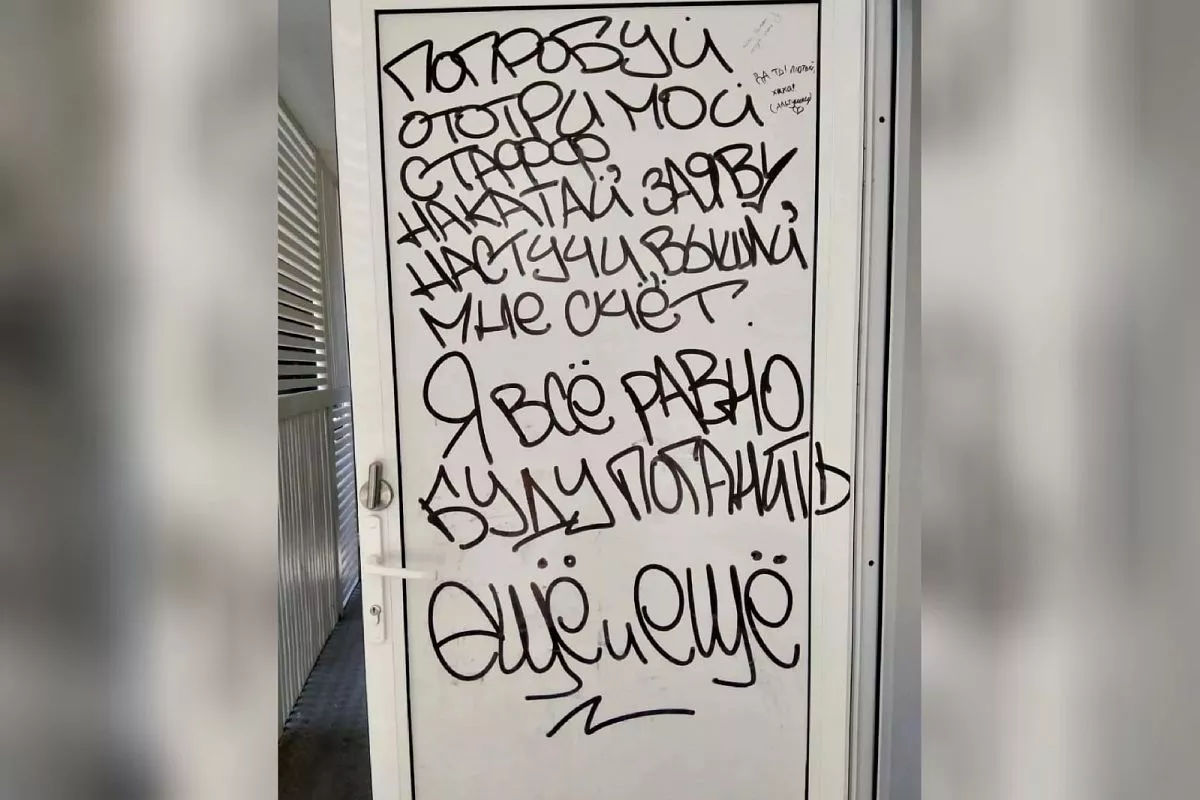 ПОПРОБУЙ
ОТОТРИ МОЙ
СТАФФ,
НАКАТАЙ ЗАЯВУ,
НАСТУЧИ, ВЫШЛИ
МНЕ СЧЁТ.
Я ВСЁ РАВНО
БУДУ ПОГАНИТЬ
ЕЩЁ и ЕЩЁ
ДА ТЫ